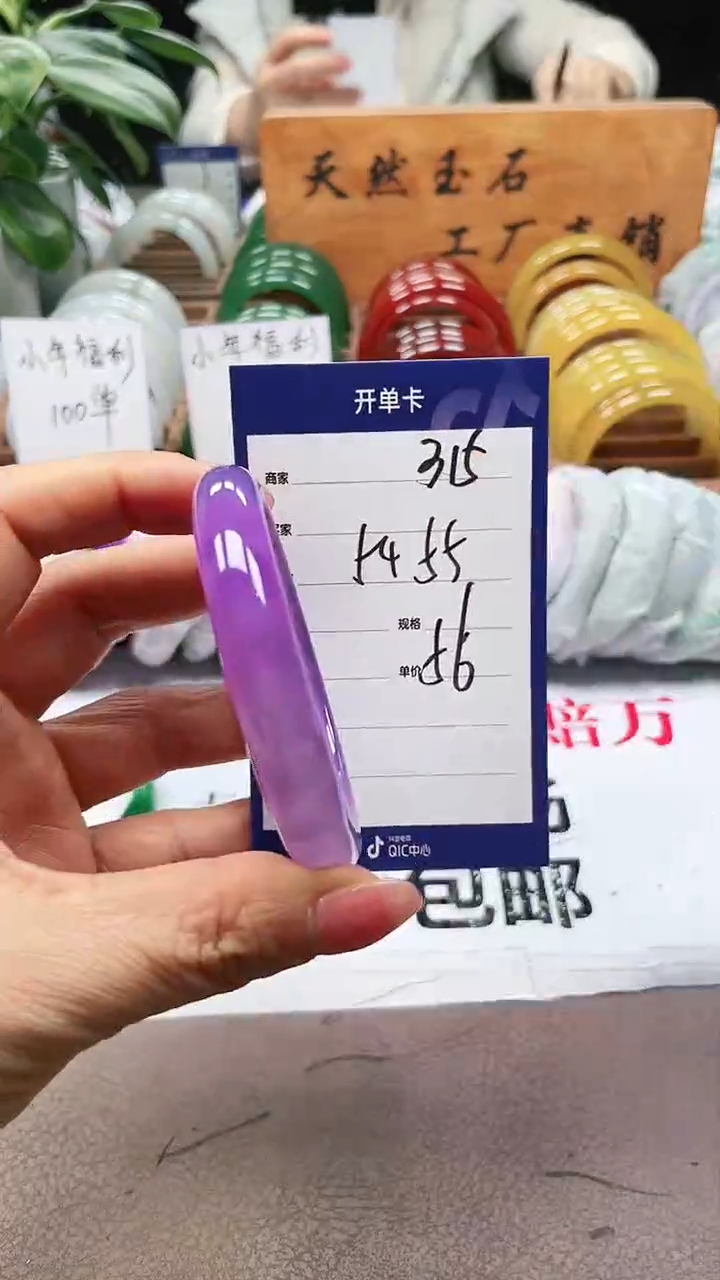 天然玉石
工厂直销
小年福利
100单
小年福利
开单卡
商家 315
5455
规格
单价 56
抖音电商
QIC中心
赔万
包邮